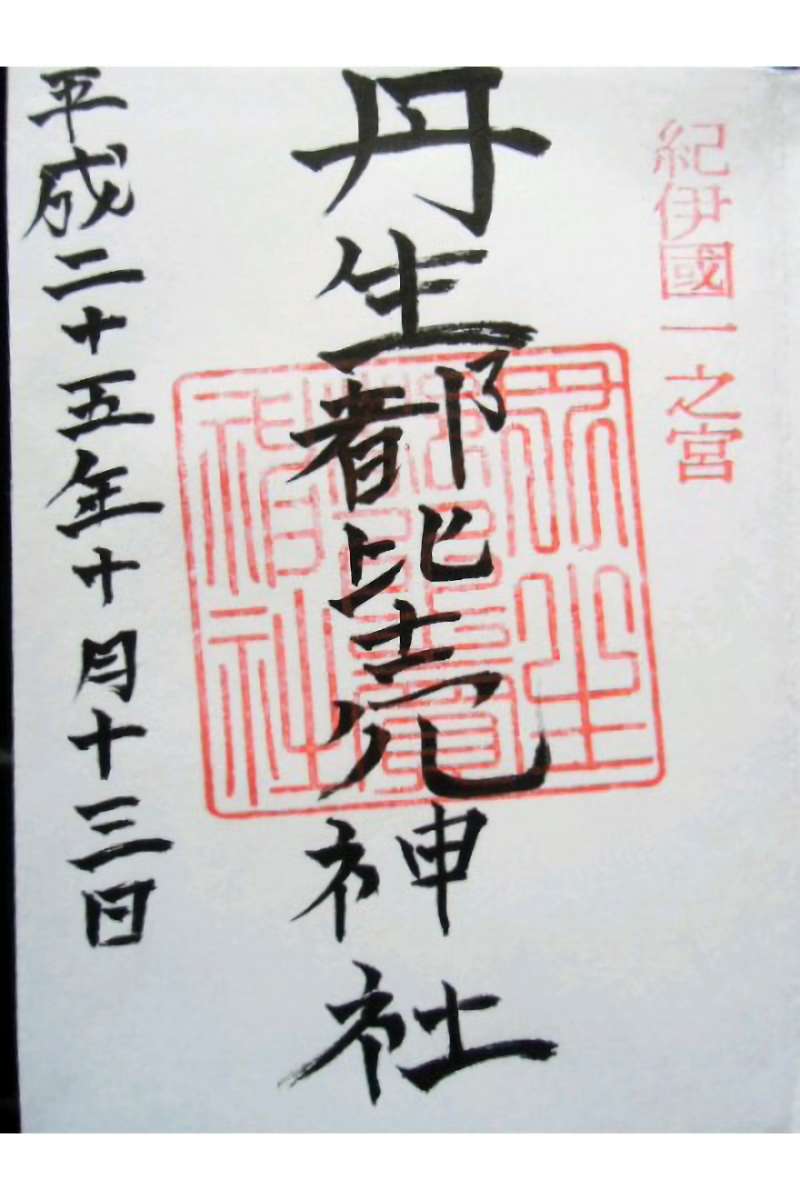 紀伊國一之宮
丹生都比売神社
平成二十五年十月十三日